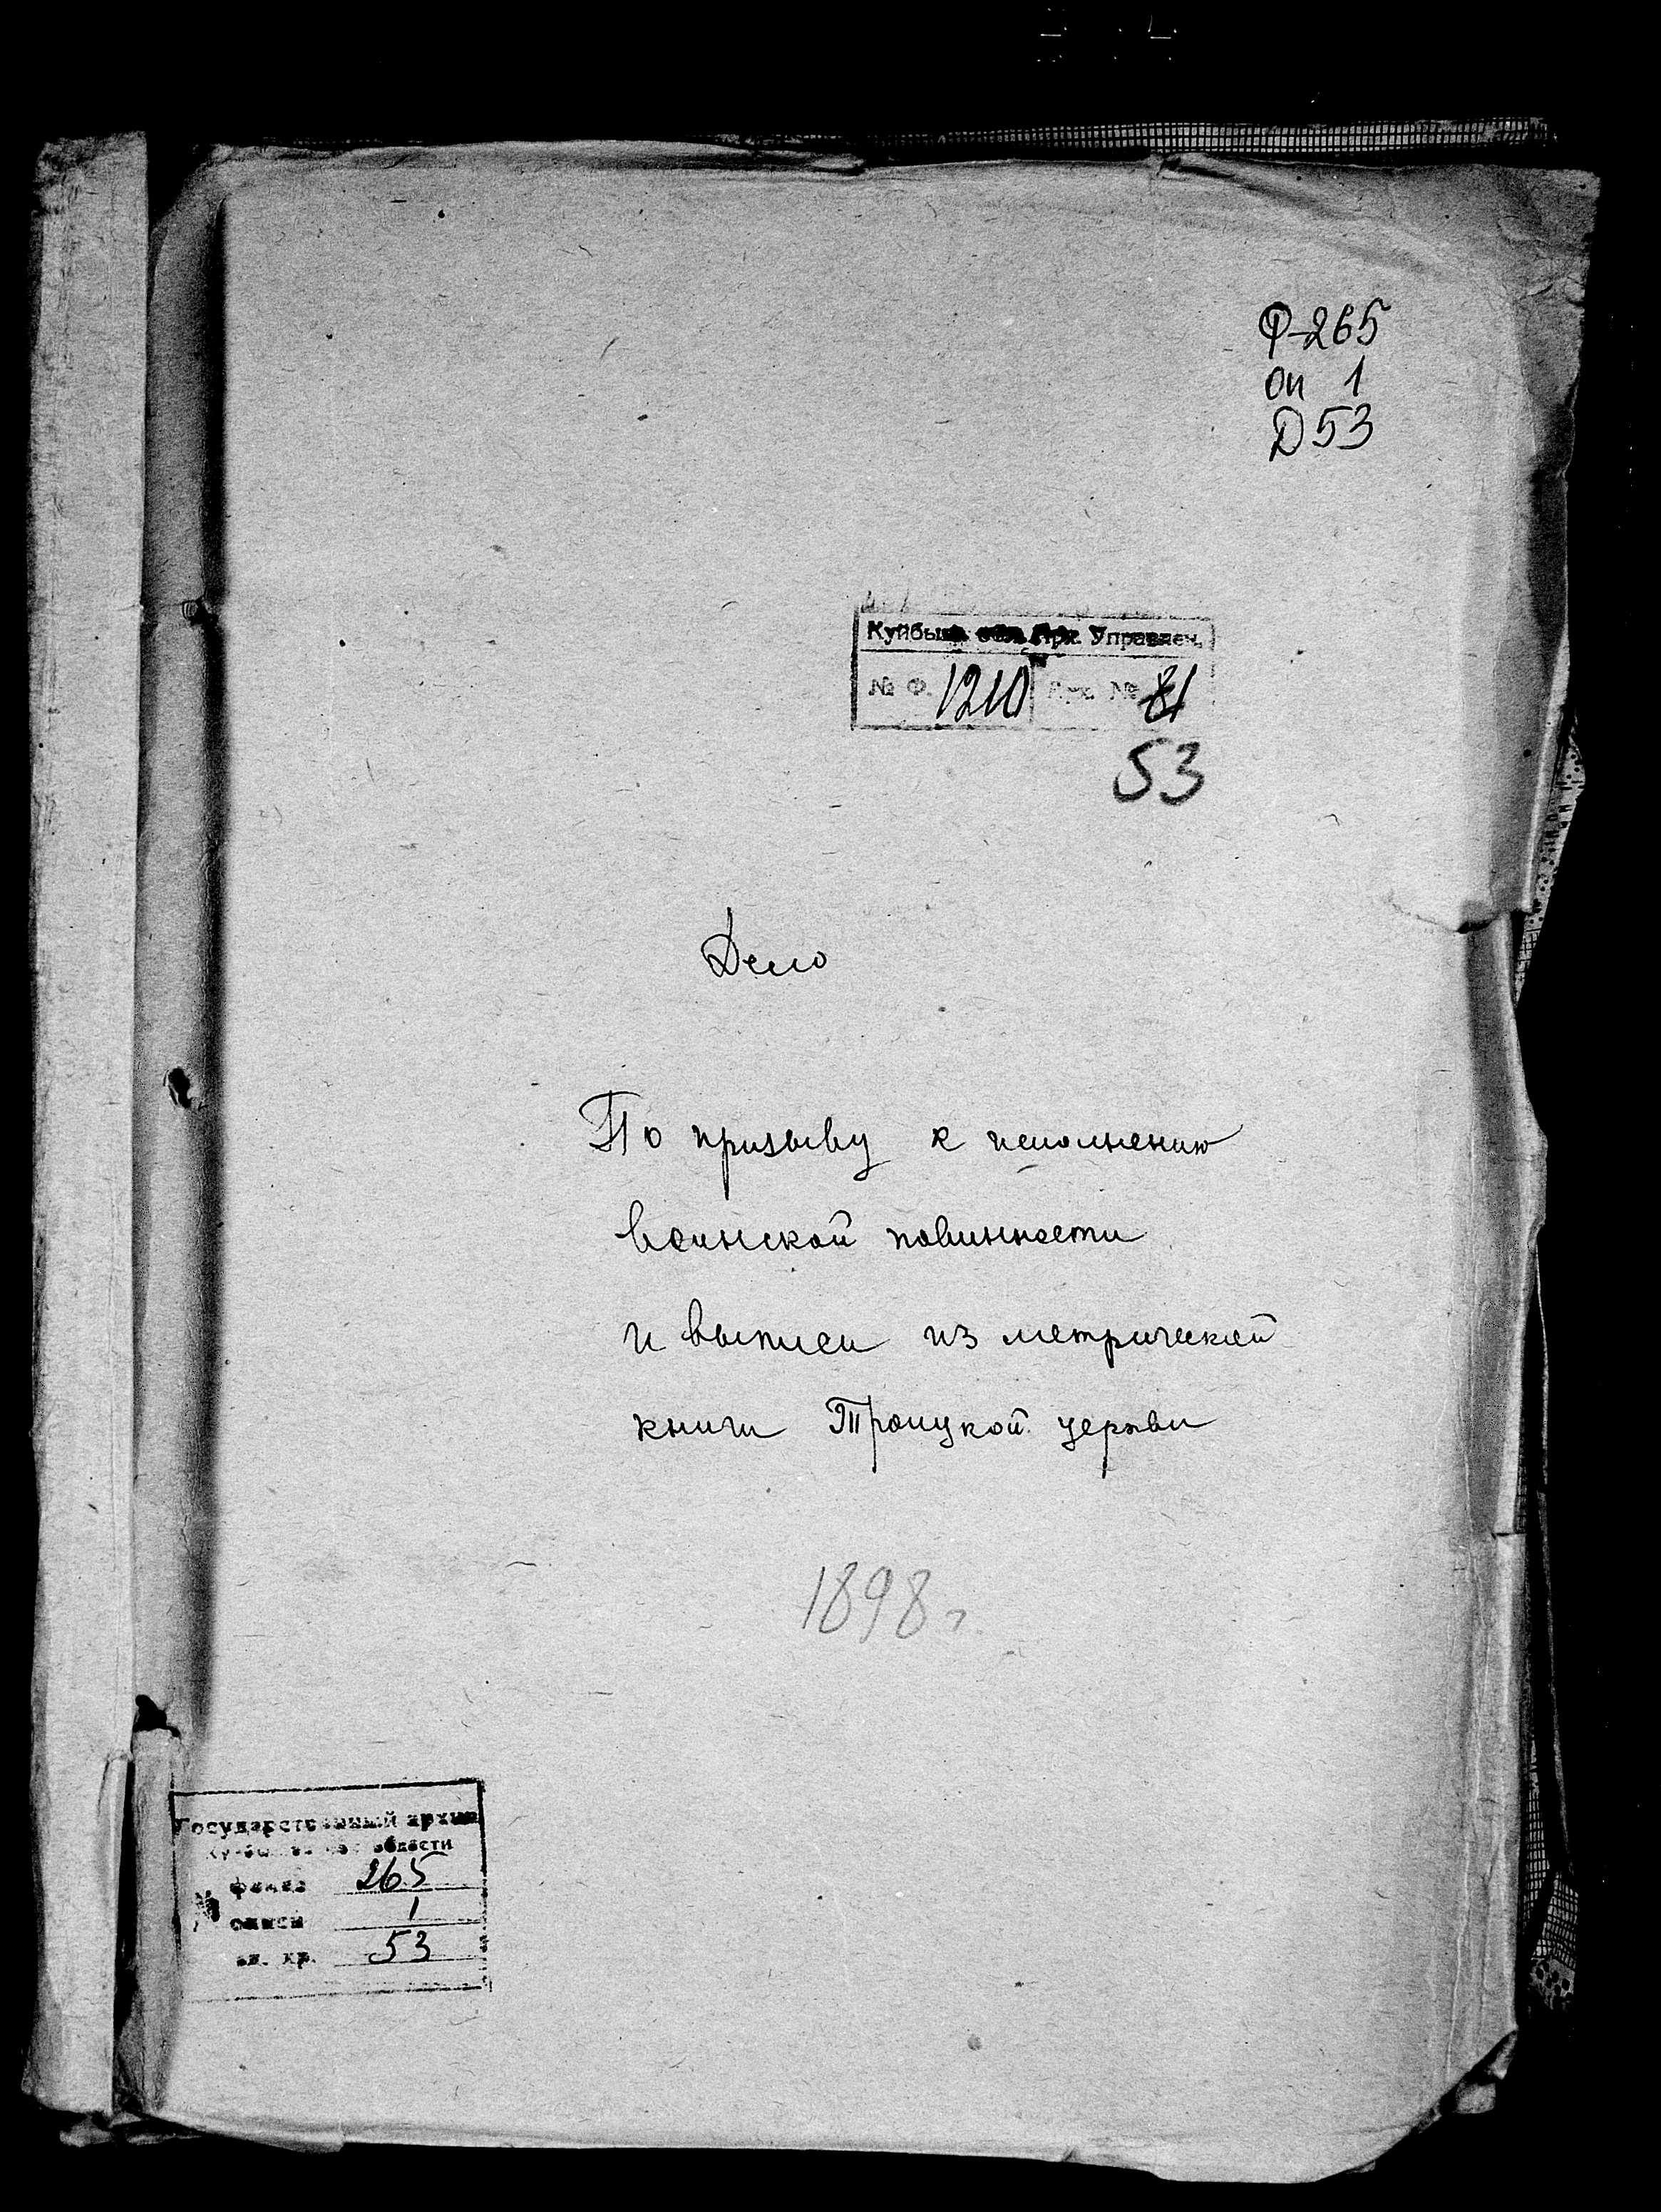 Ф-265
оп 1
Д 53
Куйбыш. обл. Арх. Управлен.
№ Ф. 1210 № 81
53
Дело
По призыву к исполнению
воинской повинности
и выписи из метрической
книги Троицкой церкви
1898 г.
Государственный архив
Куйбышевской области
№ фонда 265
описи 1
ед. хр. 53